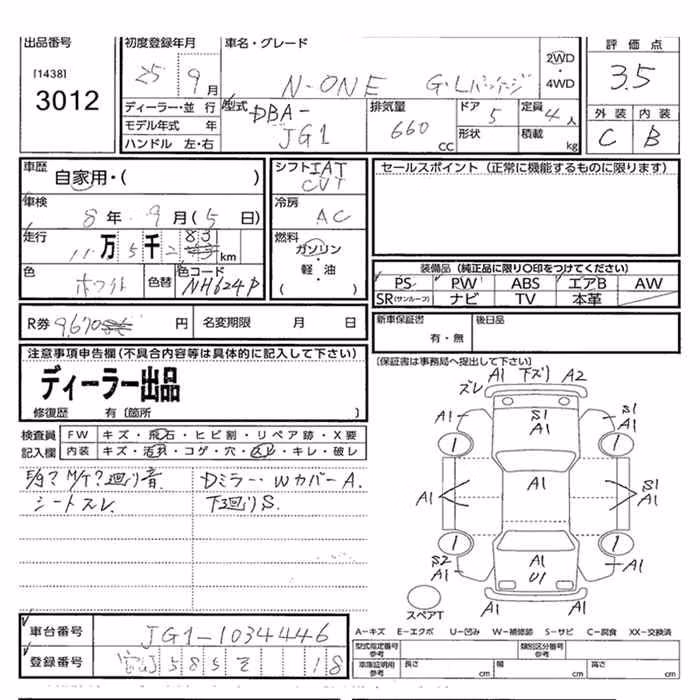 出品番号
[1438]
3012
初度登録年月
25 9月
ディーラー・並行
モデル年式 年
ハンドル 左・右
車名・グレード
N-ONE G・Lパッケージ
2WD
・
4WD
型式
DBA-
JG1
排気量
660
CC
ドア
5
形状
定員
4人
積載
kg
評価点
3.5
外装 内装
C B
車歴
自家用・( )
車検
8年 9月(5日)
走行
11万5千2831km
色
ホワイト
色替
色コード
NH624P
シフト IAT
CVT
冷房
AC
燃料
ガソリン
・
軽・油
( )
セールスポイント (正常に機能するものに限ります)
装備品 (純正品に限り○印をつけてください)
PS PW ABS エアB AW
SR(サンルーフ) ナビ TV 本革
R券 9,670 円 名変期限 月 日
新車保証書
有・無
後日品
(保証書は事務局へ提出して下さい)
注意事項申告欄(不具合内容等は具体的に記入して下さい)
ディーラー出品
修復歴 有〔箇所 〕
検査員
記入欄
FW キズ・飛石・ヒビ割・リペア跡・X要
内装 キズ・汚れ・コゲ・穴・スレ・キレ・破レ
E/g? M/T? 廻り音.
シートスレ
Dミラー・WカバーA.
下廻りS.
ズレ A1 下ズリ A2
A1 S1 A1 S1 A1
1 1
A1 A1 S1 A1
1 1
S2 A1 A1 U1 A1
A1 A1
スペアT
A-キズ E-エクボ U-凹み W-補修跡 S-サビ C-腐食 XX-交換済
車台番号 JG1-1034446
登録番号 585 18
型式指定番号
参考
類別区分番号
参考
車庫証明用
参考
長さ cm 幅 cm 高さ cm